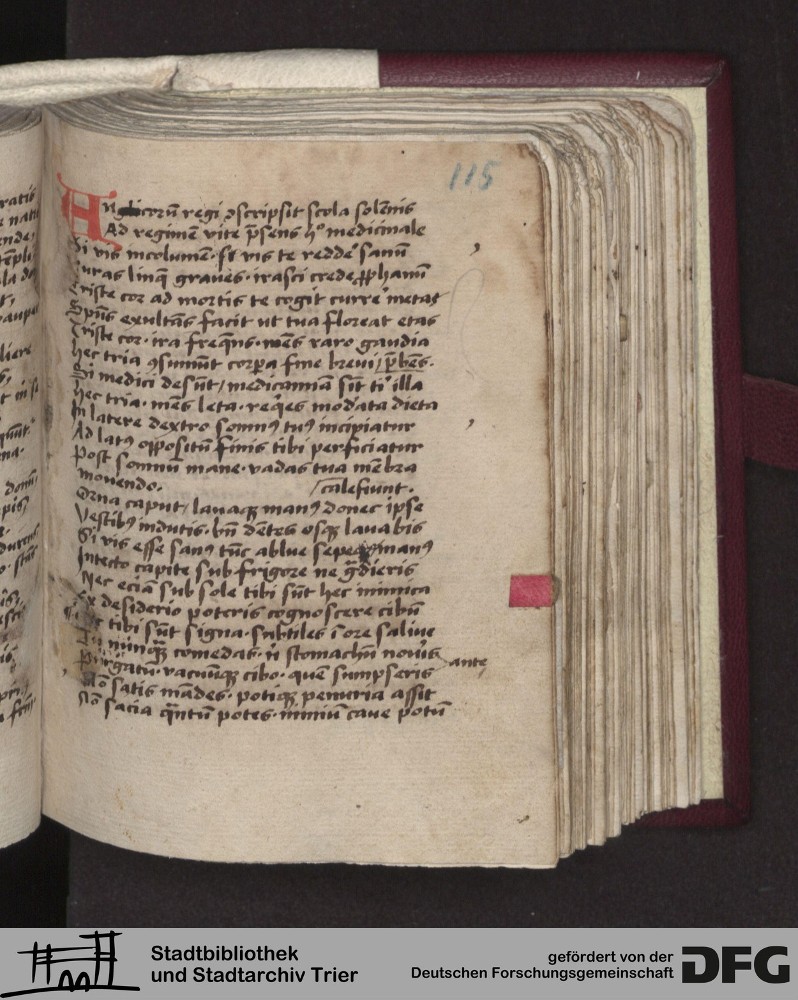 115
Anglicorū regi ↄscripsit scola solēnis
Ad regimē vite p̄sens hͦ medicinale
Si vis incolumē · si vis te redde sanū
Curas linq̄ graves · irasci crede ꝓphanū
Triste cor ad mortis te cogit curre metas
Spūs exultās facit ut tua floreat etas
Triste cor · ira freq̄ns · mēs raro gaudia
hec tria ↄsumūt corpa fine brevi / p̄bēs ·
Si medici desūt / medicamīa sit ti illa
hec tria · mēs leta · req̄es modata dieta
In latere dextro somnꝰ tuꝰ incipiatur
Ad latꝰ oppositū finis tibi perficiatur
Post somnū mane · vadas tua mēbra
movendo · / calefiunt ·
Orna caput / lavaqꝫ manꝰ donec ipse
Vestibꝰ indutis · bn̄ dētes osqꝫ lavabis
Si vis esse sanꝰ tūc ablue sepe manꝰ
Intecto capite sub frigore ne g̃dieris
Nec eciā sub sole tibi sūt hec inimica
Ex desiderio poteris cognoscere cibū
tibi sūt signa · subtiles ī ore salive
Tu nūnqꝫ comedas · ni stomachū noūis ante
Purgatū · vacuūqꝫ cibo · quē sumpseris
Nō satis mādes · potiqꝫ penuria assit
Nō sacia q̄ntū potes · nimiū cave potū
Stadtbibliothek
und Stadtarchiv Trier
gefördert von der
Deutschen Forschungsgemeinschaft
DFG